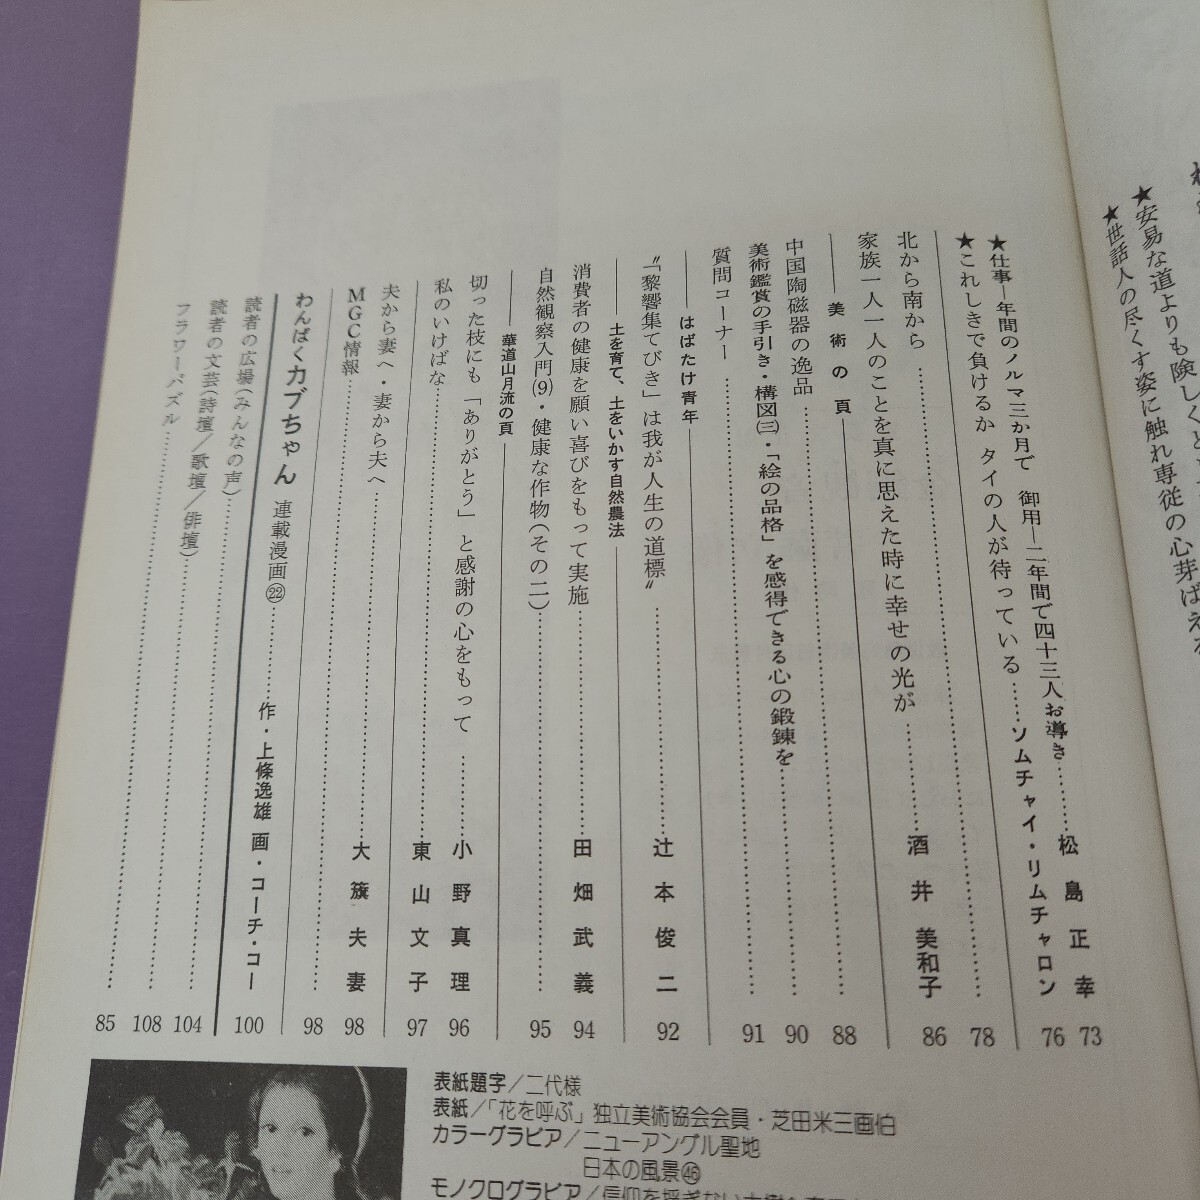 ★安易な道よりも険しくと
★世話人の尽くす姿に触れ専従の心芽ばえる
★仕事―年間のノルマ三か月で 御用―二年間で四十三人お導き………松島正幸 73
★これしきで負けるか タイの人が待っている……ソムチャイ・リムチャロン 76
北から南から………… 78
家族一人一人のことを真に思えた時に幸せの光が…………酒井美和子 86
美術の頁………… 88
中国陶磁器の逸品………… 90
美術鑑賞の手引き・構図㈢・「絵の品格」を感得できる心の鍛錬を………… 91
質問コーナー…………
はばたけ青年
〝「黎響集てびき」は我が人生の道標〟…………辻本俊二 92
土を育て、土をいかす自然農法
消費者の健康を願い喜びをもって実施…………田畑武義 94
自然観察入門(9)・健康な作物(その二)………… 95
華道山月流の頁
切った枝にも「ありがとう」と感謝の心をもって…………小野真理 96
私のいけばな…………東山文子 97
夫から妻へ・妻から夫へ…………大籏夫妻 98
MGC情報………… 98
わんぱくカブちゃん 連載漫画㉒…………作・上條逸雄 画・コーチ・コー 100
読者の広場(みんなの声)………… 104
読者の文芸(詩壇/歌壇/俳壇)………… 108
フラワーパズル………… 85
表紙題字/二代様
表紙/「花を呼ぶ」独立美術協会会員・芝田米三画伯
カラーグラビア/ニューアングル聖地
日本の風景㊻
モノクログラビア/信仰を揺ぎない大樹へ